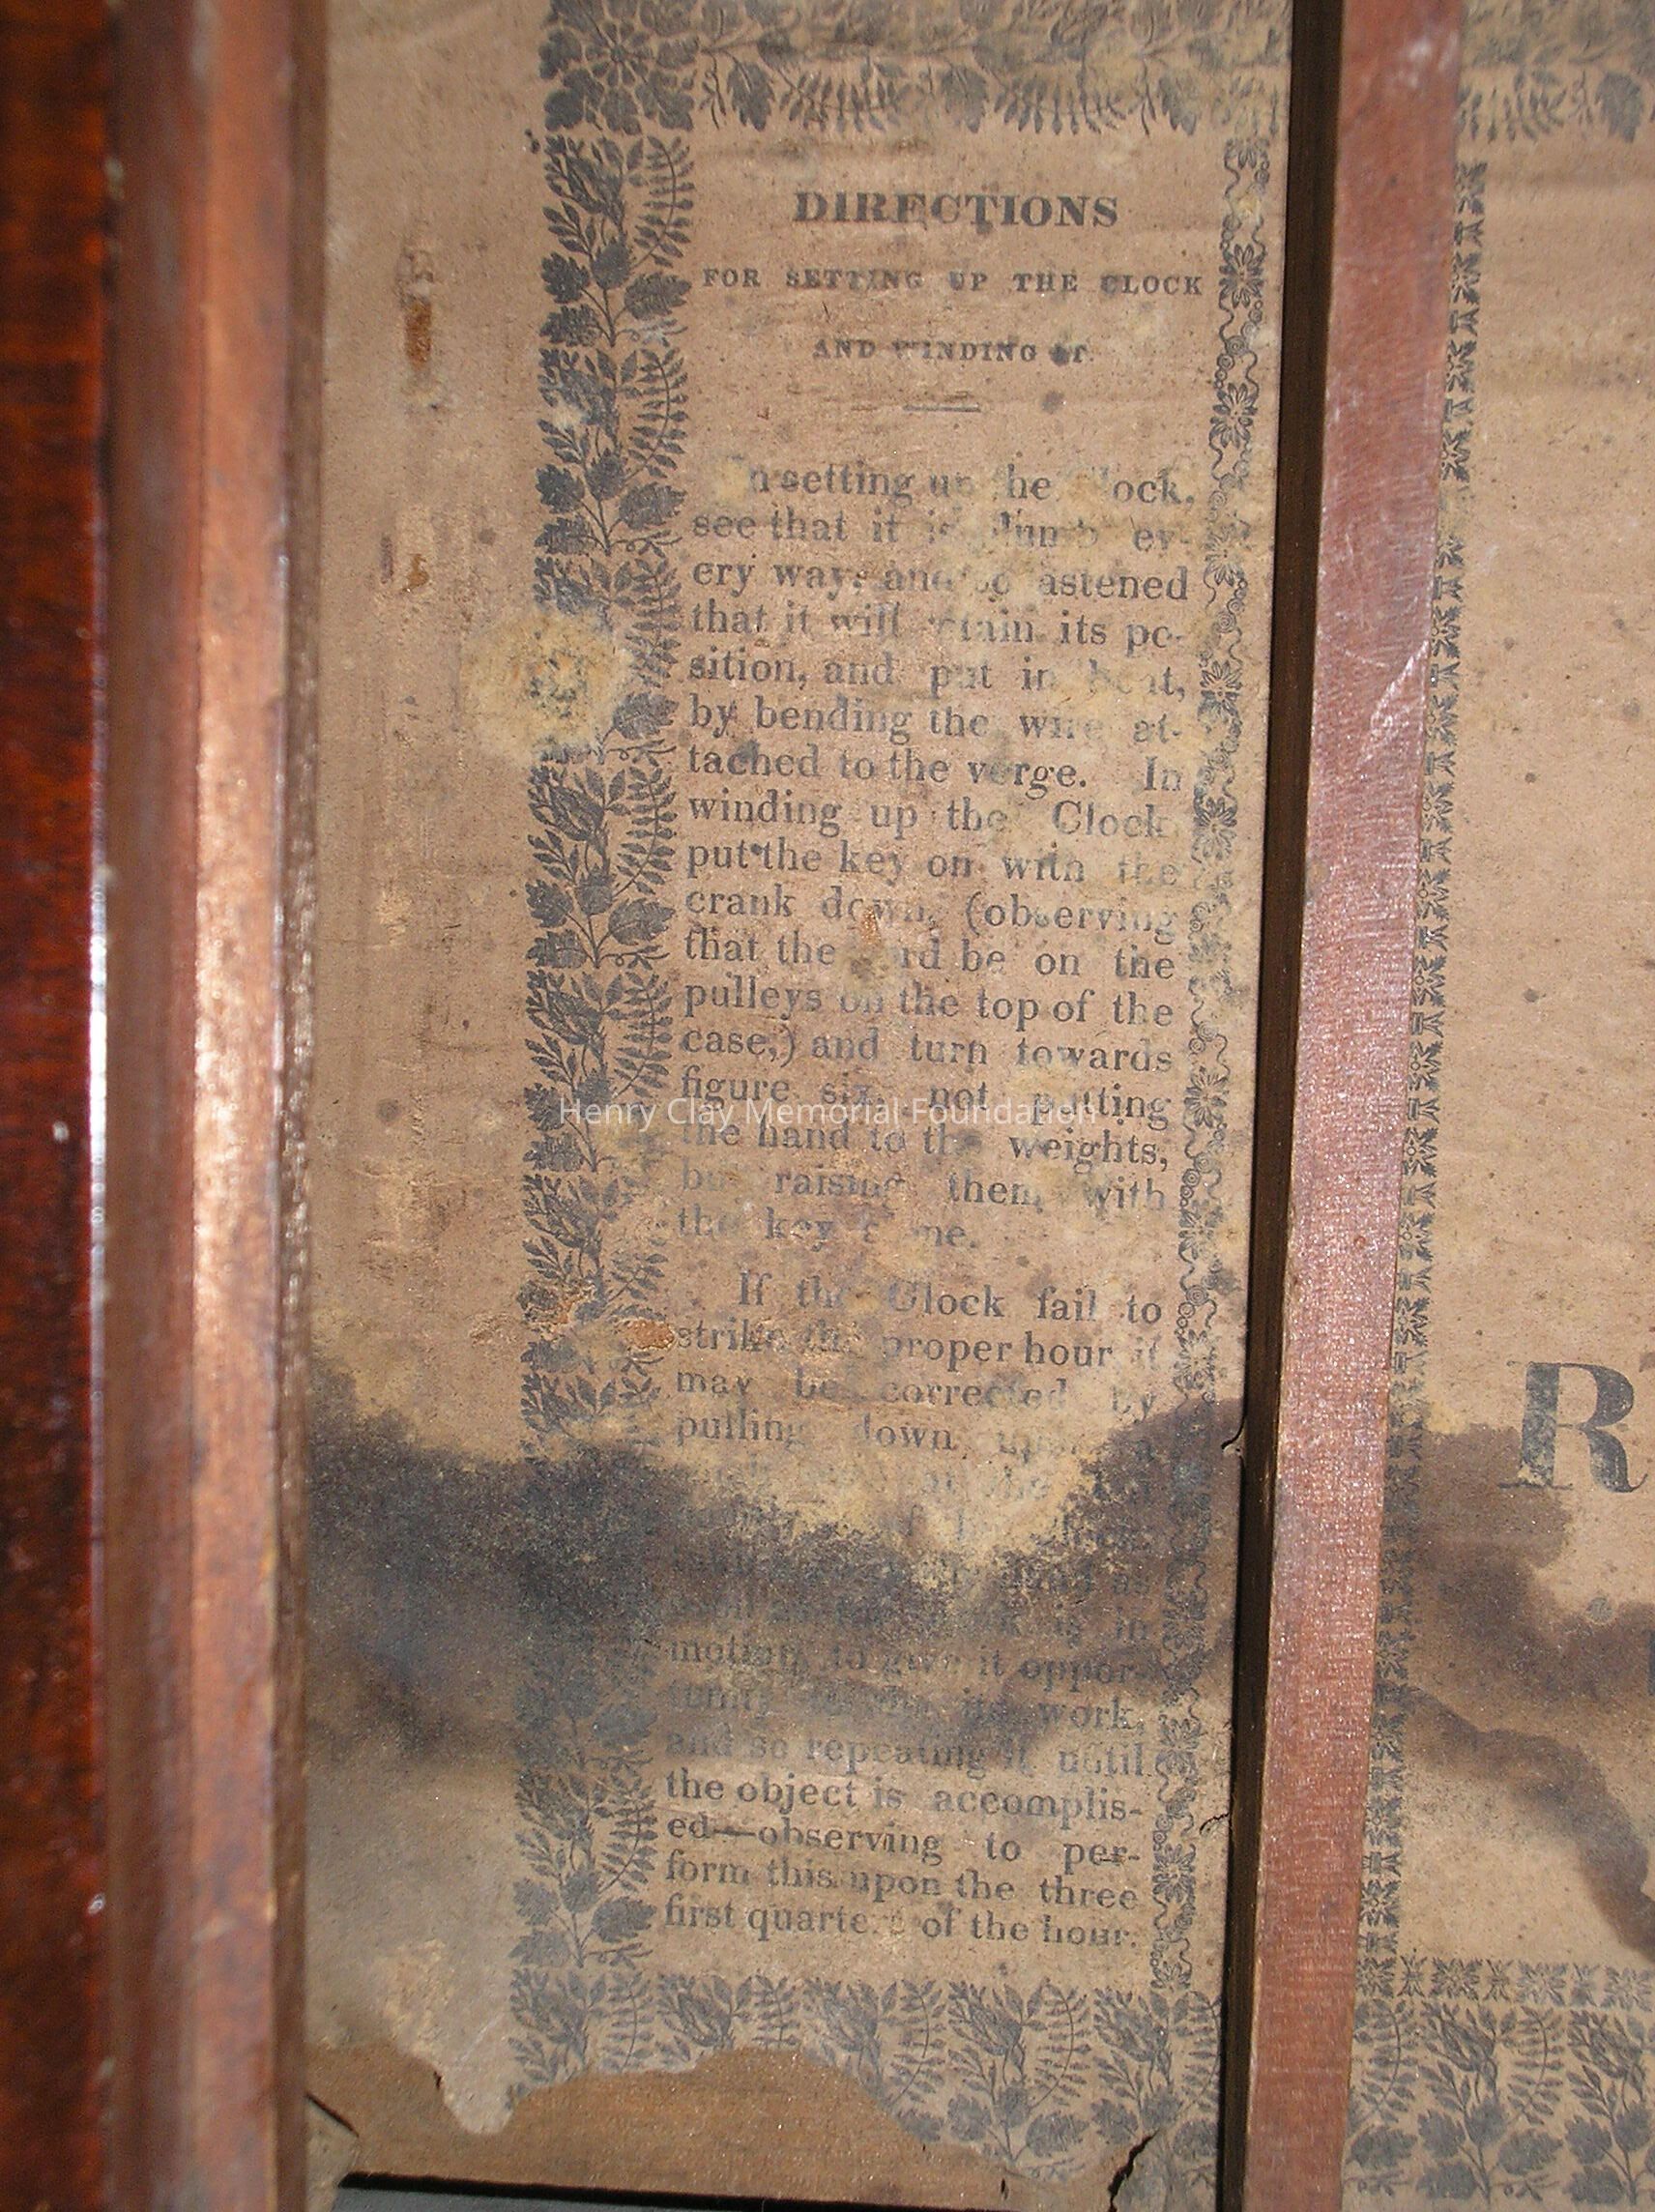 DIRECTIONS
FOR SETTING UP THE CLOCK
AND WINDING IT.
In setting up the Clock,
see that it is plumb ev-
ery way, and so fastened
that it will retain its po-
sition, and put in beat,
by bending the wire at-
tached to the verge. In
winding up the Clock
put the key on with the
crank down, (observing
that the cord be on the
pulleys on the top of the
case,) and turn towards
figure six, not putting
the hand to the weights,
but raising them with
the key alone.
If the Clock fail to
strike the proper hour it
may be corrected by
pulling down upon a
as
is in
motion, to give it oppor-
its work,
and so repeating it until
the object is accomplis-
ed—observing to per-
form this upon the three
first quarters of the hour.
R
Henry Clay Memorial Foundation